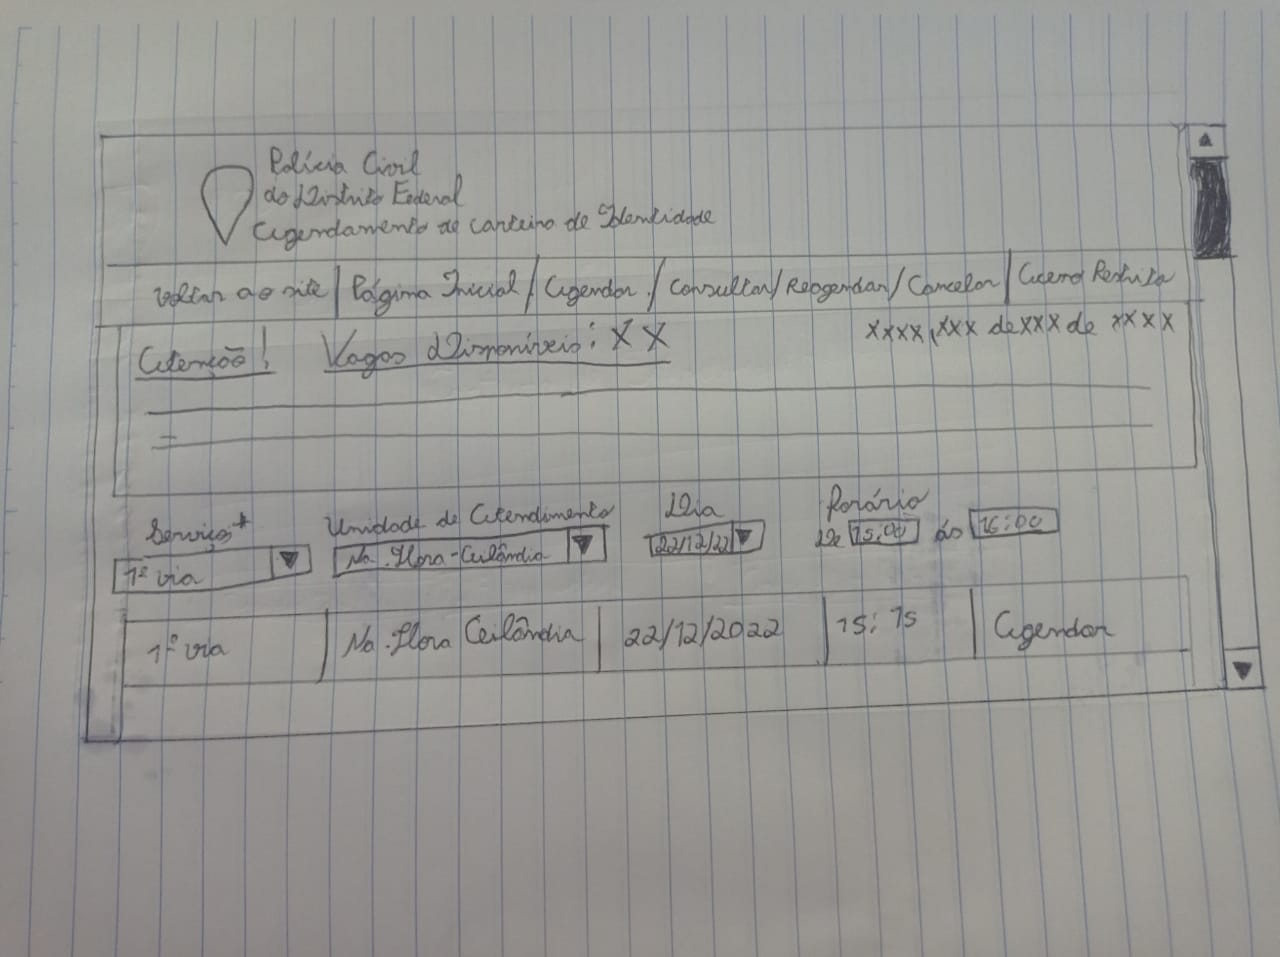 Polícia Civil
do Distrito Federal
Agendamento de carteira de Identidade
Voltar ao site | Página Inicial / Agendar / Consultar / Reagendar / Cancelar | Acesso Restrito
Atenção! Vagas Disponíveis: XX xxxx, xxx de xxx de xxxx
Serviço* Unidade de Atendimento Dia Horário
1ª via Na.Hora-Ceilândia 22/12/22 De 15:00 às 16:00
1ª via | Na.Hora Ceilândia | 22/12/2022 | 15:15 | Agendar